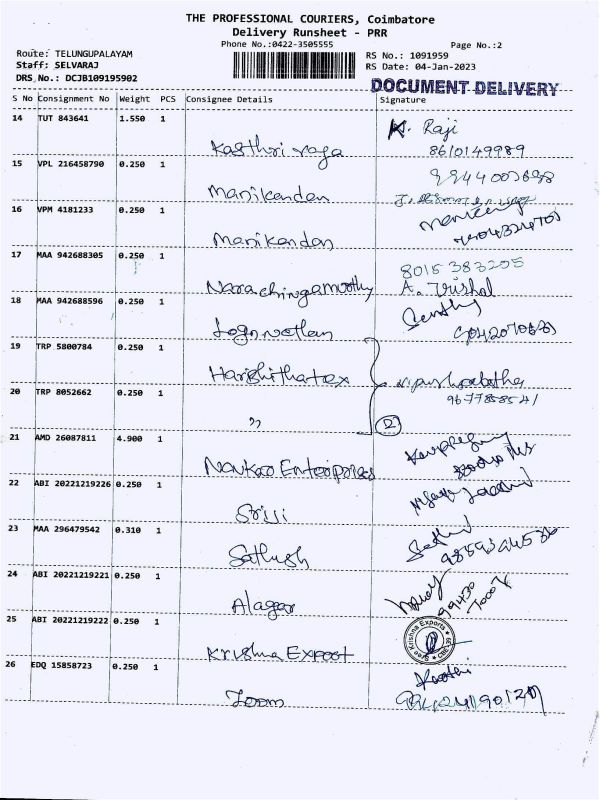 THE PROFESSIONAL COURIERS, Coimbatore
Delivery Runsheet - PRR
Phone No.:0422-3505555
Page No.:2
Route: TELUNGUPALAYAM
RS No.: 1091959
Staff: SELVARAJ
RS Date: 04-Jan-2023
DRS No.: DCJB109195902
DOCUMENT DELIVERY
S No Consignment No Weight PCS Consignee Details Signature
14 TUT 843641 1.550 1
Raji
Kasthri raga 8610149989
15 VPL 216458790 0.250 1
Manikandan
16 VPM 4181233 0.250 1
Manikandan
17 MAA 942688305 0.250 1
8015 383205
Narachingamoothy A. Vishal
18 MAA 942688596 0.250 1
19 TRP 5800784 0.250 1
Harshithatex
20 TRP 8052662 0.250 1
9677858541
" 2
21 AMD 26087811 4.900 1
Navkar Enterprises
22 ABI 20221219226 0.250 1
Sriji
23 MAA 296479542 0.310 1
Sathish
24 ABI 20221219221 0.250 1
Alagar
25 ABI 20221219222 0.250 1
Sree Krishna Exports
Krishna Export
26 EDQ 15858723 0.250 1
Zoom